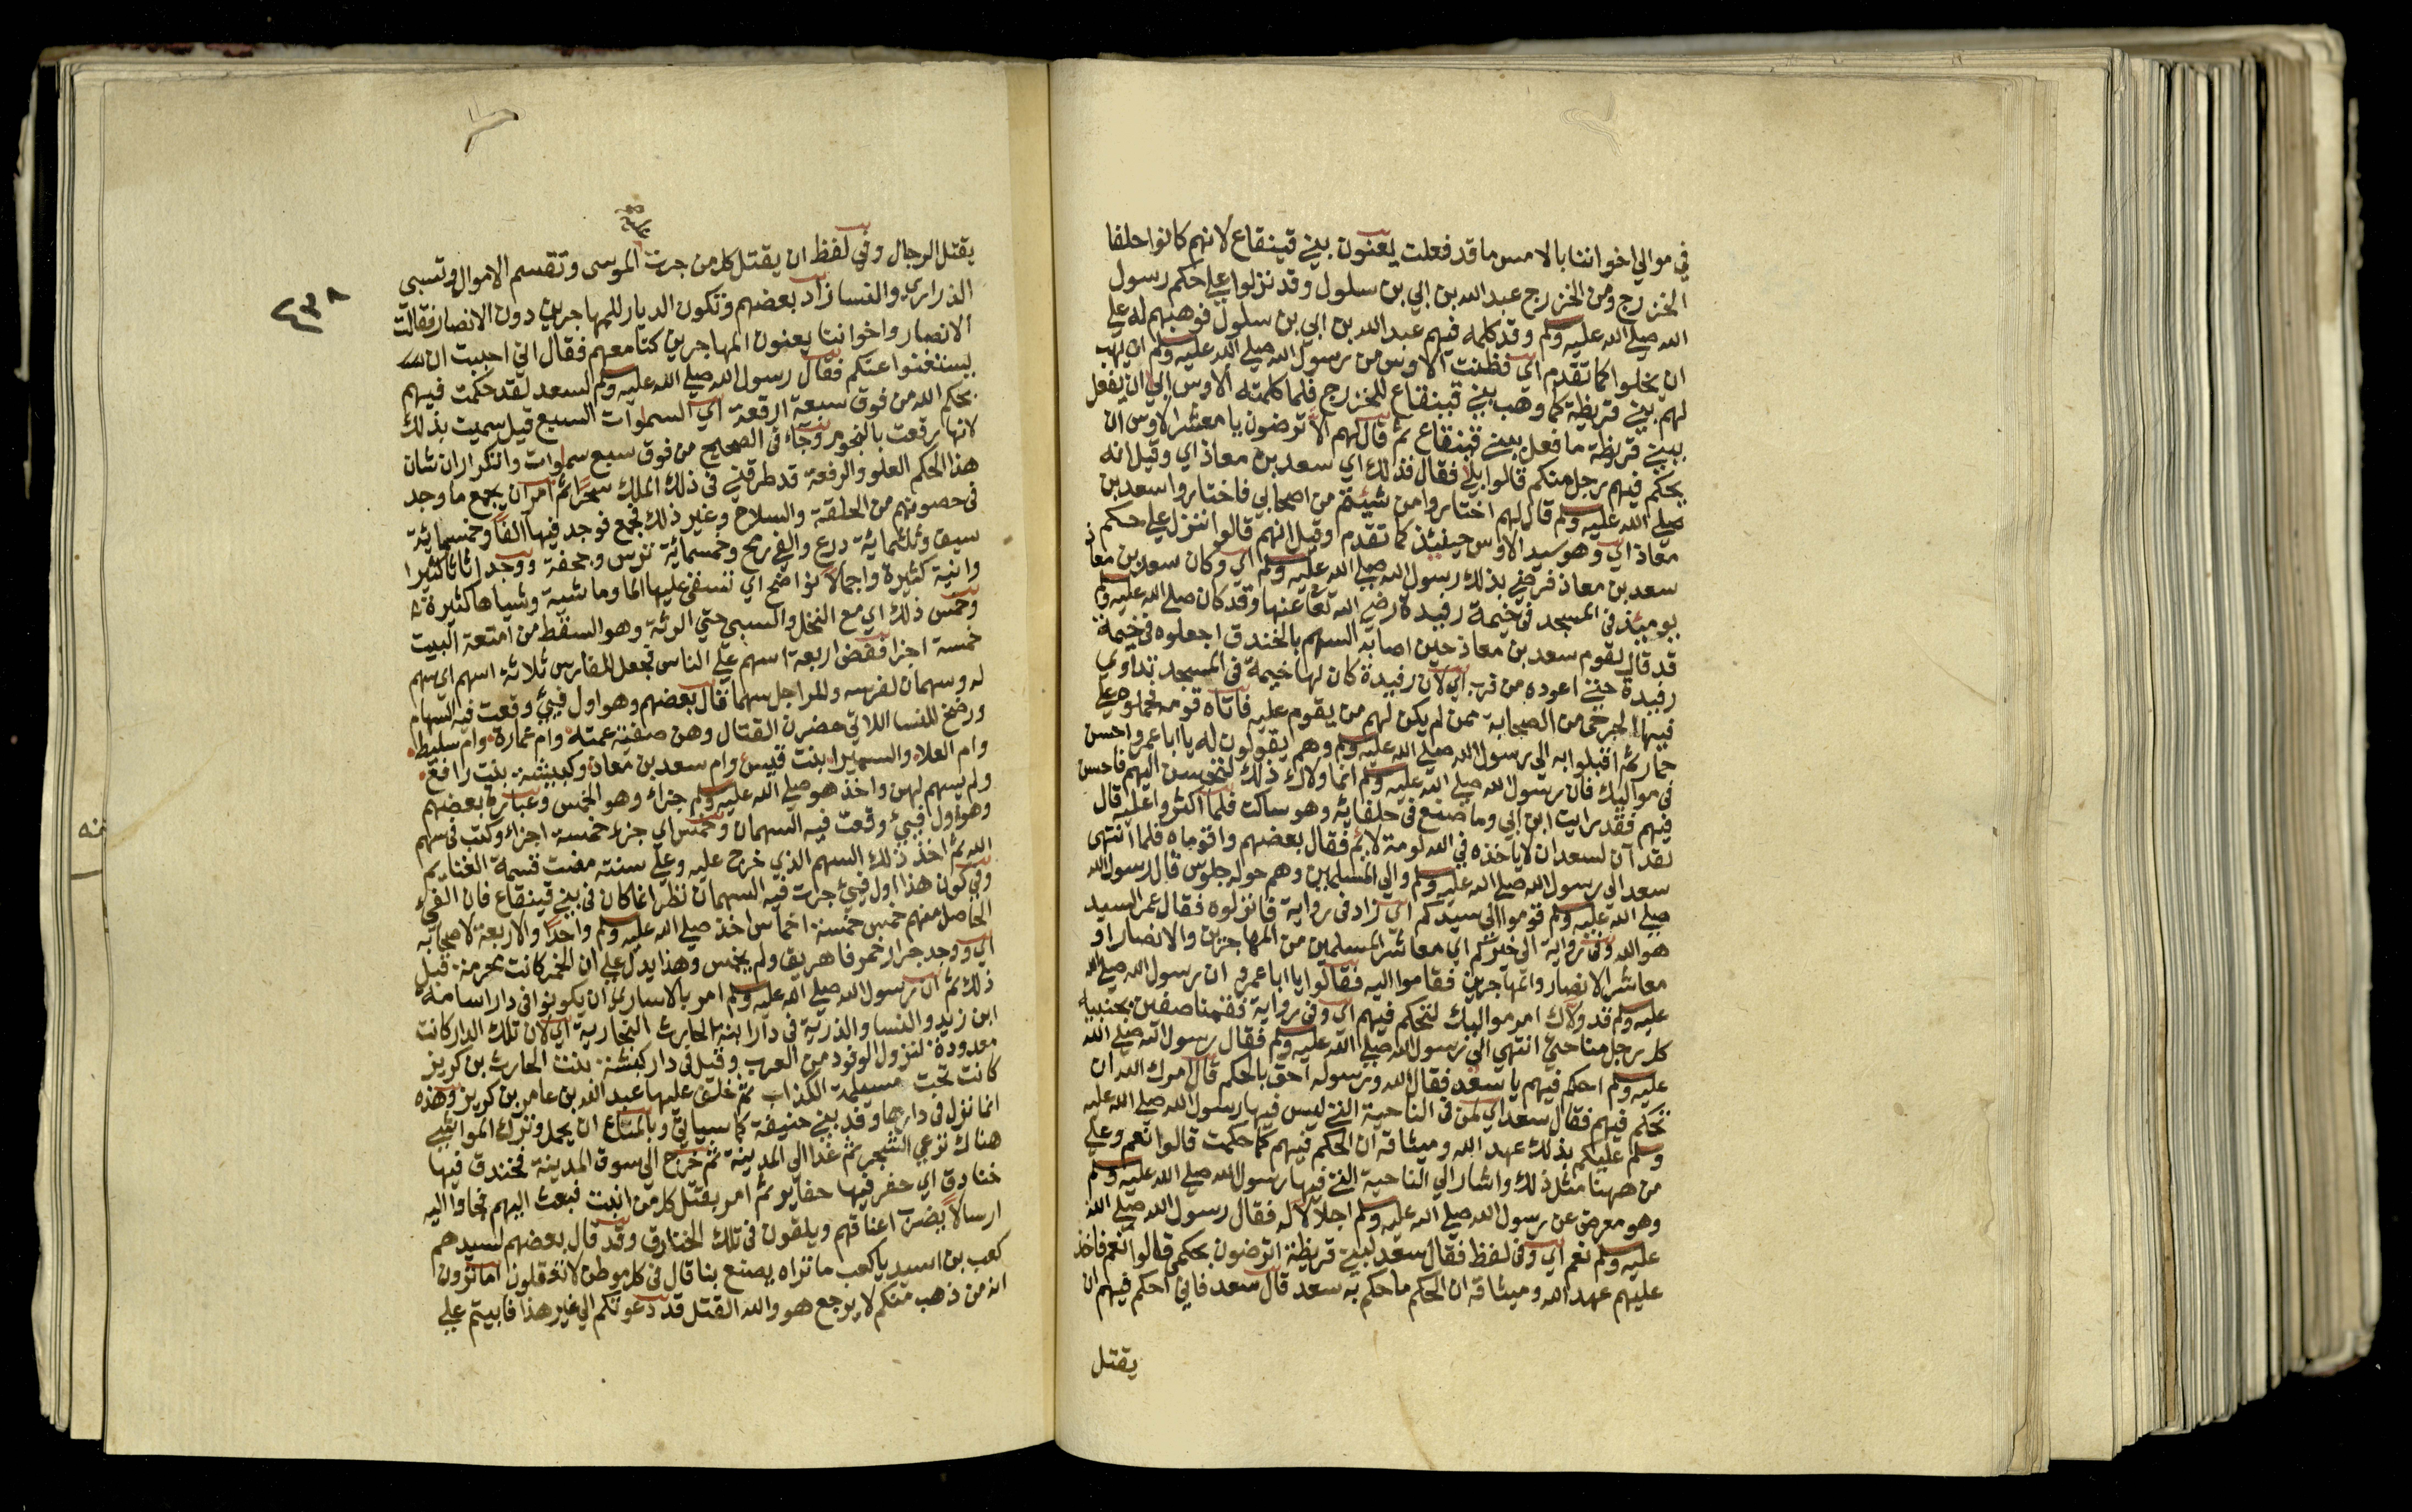 في موالي اخواننا بالامس ما قد فعلت يعنون بني قينقاع لانهم كانوا حلفا
الخزرج ومن الخزرج عبد الله بن ابي بن سلول وقد نزلوا علي حكم رسول
الله صلي الله عليه وسلم وقد كلمه فيهم عبد الله بن ابي بن سلول فوهبهم له علي
ان يجلوا كما تقدم اي فظنت الاوس من رسول الله صلي الله عليه وسلم ان يهب
لهم بني قريظة كما وهب بني قينقاع للخزرج فلما كلمته الاوس ابي ان يفعل
ببني قريظة ما فعل ببني قينقاع ثم قال لهم الا ترضون يا معشر الاوس ان
يحكم فيهم رجل منكم قالوا بلي فقال فذلك اي سعد بن معاذ اي وقيل انه
صلي الله عليه وسلم قال لهم اختاروا من شئتم من اصحابي فاختاروا سعد بن
معاذ اي وهو سيد الاوس حينئذ كما تقدم وقيل انهم قالوا ننزل علي حكم
سعد بن معاذ فرضي بذلك رسول الله صلي الله عليه وسلم اي وكان سعد بن معاذ
يومئذ في المسجد في خيمة رفيدة رضي الله تعا عنها وقد كان صلي الله عليه وسلم
قد قال لقوم سعد بن معاذ حين اصابه السهم بالخندق اجعلوه في خيمة
رفيدة حتي اعوده من قرب اي لان رفيدة كان لها خيمة في المسجد تداوي
فيها الجرحى من الصحابة ممن لم يكن لهم من يقوم عليه فاتاه قومه فحملوه علي
حمار ثم اقبلوا به الى رسول الله صلي الله عليه وسلم وهم يقولون له يا ابا عمرو احسن
في مواليك فان رسول الله صلي الله عليه وسلم انما ولاك ذلك لتحسن اليهم فاحسن
فيهم فقد رايت ابن ابي وما صنع في حلفايه وهو ساكت فلما اكثروا عليه قال
لقد آن لسعد ان لا ياخذه في الله لومة لائم فقال بعضهم واقوماه فلما انتهى
سعد الي رسول الله صلي الله عليه وسلم والي المسلمين وهم حوله جلوس قال رسول الله
صلي الله عليه وسلم قوموا الي سيدكم اي زاد في رواية فانزلوه فقال عمر السيد
هو الله وفي رواية الى خيركم اي معاشر المسلمين من المهاجرين والانصار او
معاشر الانصار والمهاجرين فقاموا اليه فقالوا يا ابا عمرو ان رسول الله صلي الله
عليه وسلم قد ولاك امر مواليك لتحكم فيهم اي وفي رواية فقمنا صفين يجنبيه
كل رجل منا حتي انتهى الي رسول الله صلي الله عليه وسلم فقال رسول الله صلي الله
عليه وسلم احكم فيهم يا سعد فقال الله ورسوله احق بالحكم قال امرك الله ان
تحكم فيهم فقال سعد اي لمن في الناحية التي ليس فيها رسول الله صلي الله عليه
وسلم عليكم بذلك عهد الله وميثاقه ان الحكم فيهم كما حكمت قالوا نعم وعلي
من ههنا مثل ذلك واشار الي الناحية التي فيها رسول الله صلي الله عليه وسلم
وهو معرض عن رسول الله صلي الله عليه وسلم اجلالا له فقال رسول الله صلي الله
عليه وسلم نعم اي وفي لفظ فقال سعد لبني قريظة اترضون بحكمي قالوا نعم فاخذ
عليهم عهد الله وميثاقه ان الحكم ما حكم به سعد قال سعد فاني احكم فيهم ان
يقتل
٤٣٨
يقتل الرجال وفي لفظ ان يقتل كل من جرت الموسى وتقسم الاموال وتسبى
الذراري والنسا زاد بعضهم وتكون الديار للمهاجرين دون الانصار فقالت
الانصار واخواننا يعنون المهاجرين كنا معهم فقال اني احببت ان
يستغنوا عنكم فقال رسول الله صلي الله عليه وسلم لسعد لقد حكمت فيهم
بحكم الله من فوق سبعة ارقعة اي السموات السبع قيل سميت بذلك
لانها رقعت بالنجوم وجاء في الصحيح من فوق سبع سموات والتكرار ان شان
هذا الحكم العلو والرفعة قد طرقني في ذلك الملك سحرا ثم امر ان يجمع ما وجد
في حصونهم من الحلقة والسلاح وغير ذلك فجمع فوجد فيها الفا وخمسماية
سيف وثلثماية درع والفي رمح وخمسماية ترس وجحفة ووجد اثاثا كثيرا
وانية كثيرة واجمالا نواضح اي تسقى عليها الما وماشية وشياها كثيرة
وخمس ذلك اي مع النخل والسبي حتي الرثة وهو السقط من امتعة البيت
خمسة اجزا ففض اربعة اسهم علي الناس فجعل للفارس ثلاثة اسهم اي سهم
له وسهمان لفرسه وللراجل سهما قال بعضهم وهو اول فيئ وقعت فيه السهام
ورضخ للنسا اللاتي حضرن القتال وهن صفية عمته وام عمارة وام سليط
وام العلاء والسميرا بنت قيس وام سعد بن معاذ وكبيشة بنت رافع
ولم يسهم لهن واخذ هو صلي الله عليه وسلم جزاء وهو الخمس وعبارة بعضهم
وهو اول فيئ وقعت فيه السهمان وخمس اي جزء خمسة اجزاء وكتب في سهم
الله ثم اخذ ذلك السهم الذي خرج عليه وعلي سنته مضت قسمة الغنايم
وفي كون هذا اول فيئ جرت فيه السهمان نظر انما كان في بني قينقاع فان الفيء
الحاصل منهم خمس خمسة اخماس اخذ صلي الله عليه وسلم واحدا والاربعة لاصحابه
اي ووجد جرار خمر فاهريق ولم يخمس وهذا يدل علي ان الخمر كانت محرمة قبل
ذلك ثم ان رسول الله صلي الله عليه وسلم امر بالاسارى ان يكونوا في دار اسامة
ابن زيد والنسا والذرية في دار ابنة الحارث النجارية اي لان تلك الدار كانت
معدودة لنزول الوفود من العرب وقيل في دار كبشة بنت الحارث بن كريز
كانت تحت مسيلمة الكذاب ثم خلف عليها عبد الله بن عامر بن كريز وهذه
انما نزل في دارها وفد بني حنيفة كما سياتي وبالمتاع ان يحمل وترك المواشي
هناك ترعي الشجر ثم غدا الي المدينة ثم خرج الي سوق المدينة فخندق فيها
خنادق اي حفر فيها حفاير ثم امر بقتل كل من انبت فبعث اليهم فجاوا اليه
ارسالا يضرب اعناقهم ويلقون في تلك الخنادق وقد قال بعضهم لسيدهم
كعب بن اسيد يا كعب ما تراه يصنع بنا قال في كل موطن لا تعقلون اما ترون
انه من ذهب منكم لا يرجع هو والله القتل قد دعوتكم الي غير هذا فابيتم علي